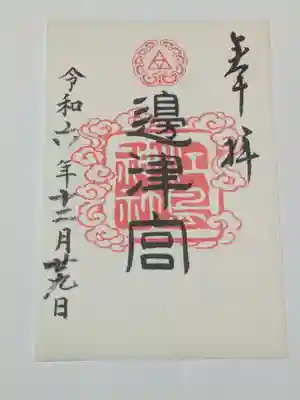 奉拝
邊津宮
令和六年十二月廿九日